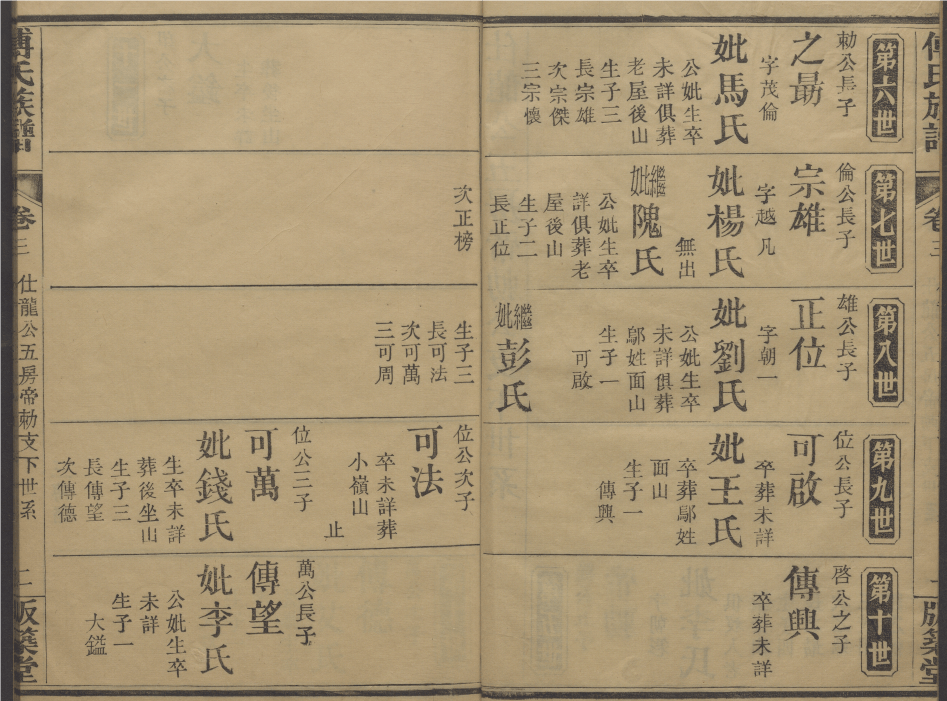 傅氏族譜
卷三
版築堂
第六世
勅公長子
之勗
字茂倫
妣馬氏
公妣生卒
未詳俱葬
老屋後山
生子三
長宗雄
次宗傑
三宗懷
第七世
倫公長子
宗雄
字越凡
妣楊氏
無出
繼妣隗氏
公妣生卒
詳俱葬老
屋後山
生子二
長正位
次正榜
第八世
雄公長子
正位
字朝一
妣劉氏
公妣生卒
未詳俱葬
鄔姓面山
生子一
可啟
繼妣彭氏
生子三
長可法
次可萬
三可周
第九世
位公長子
可啟
卒葬未詳
妣王氏
卒葬鄔姓
面山
生子一
傳興
位公次子
可法
卒未詳葬
小嶺山
止
位公二子
可萬
妣錢氏
生卒未詳
葬後坐山
生子三
長傳望
次傳德
第十世
啓公之子
傳興
卒葬未詳
萬公長子
傳望
妣李氏
公妣生卒
未詳
生子一
大鑑
傅氏族譜
卷三
仕龍公五房帝勅支下世系
二
版築堂